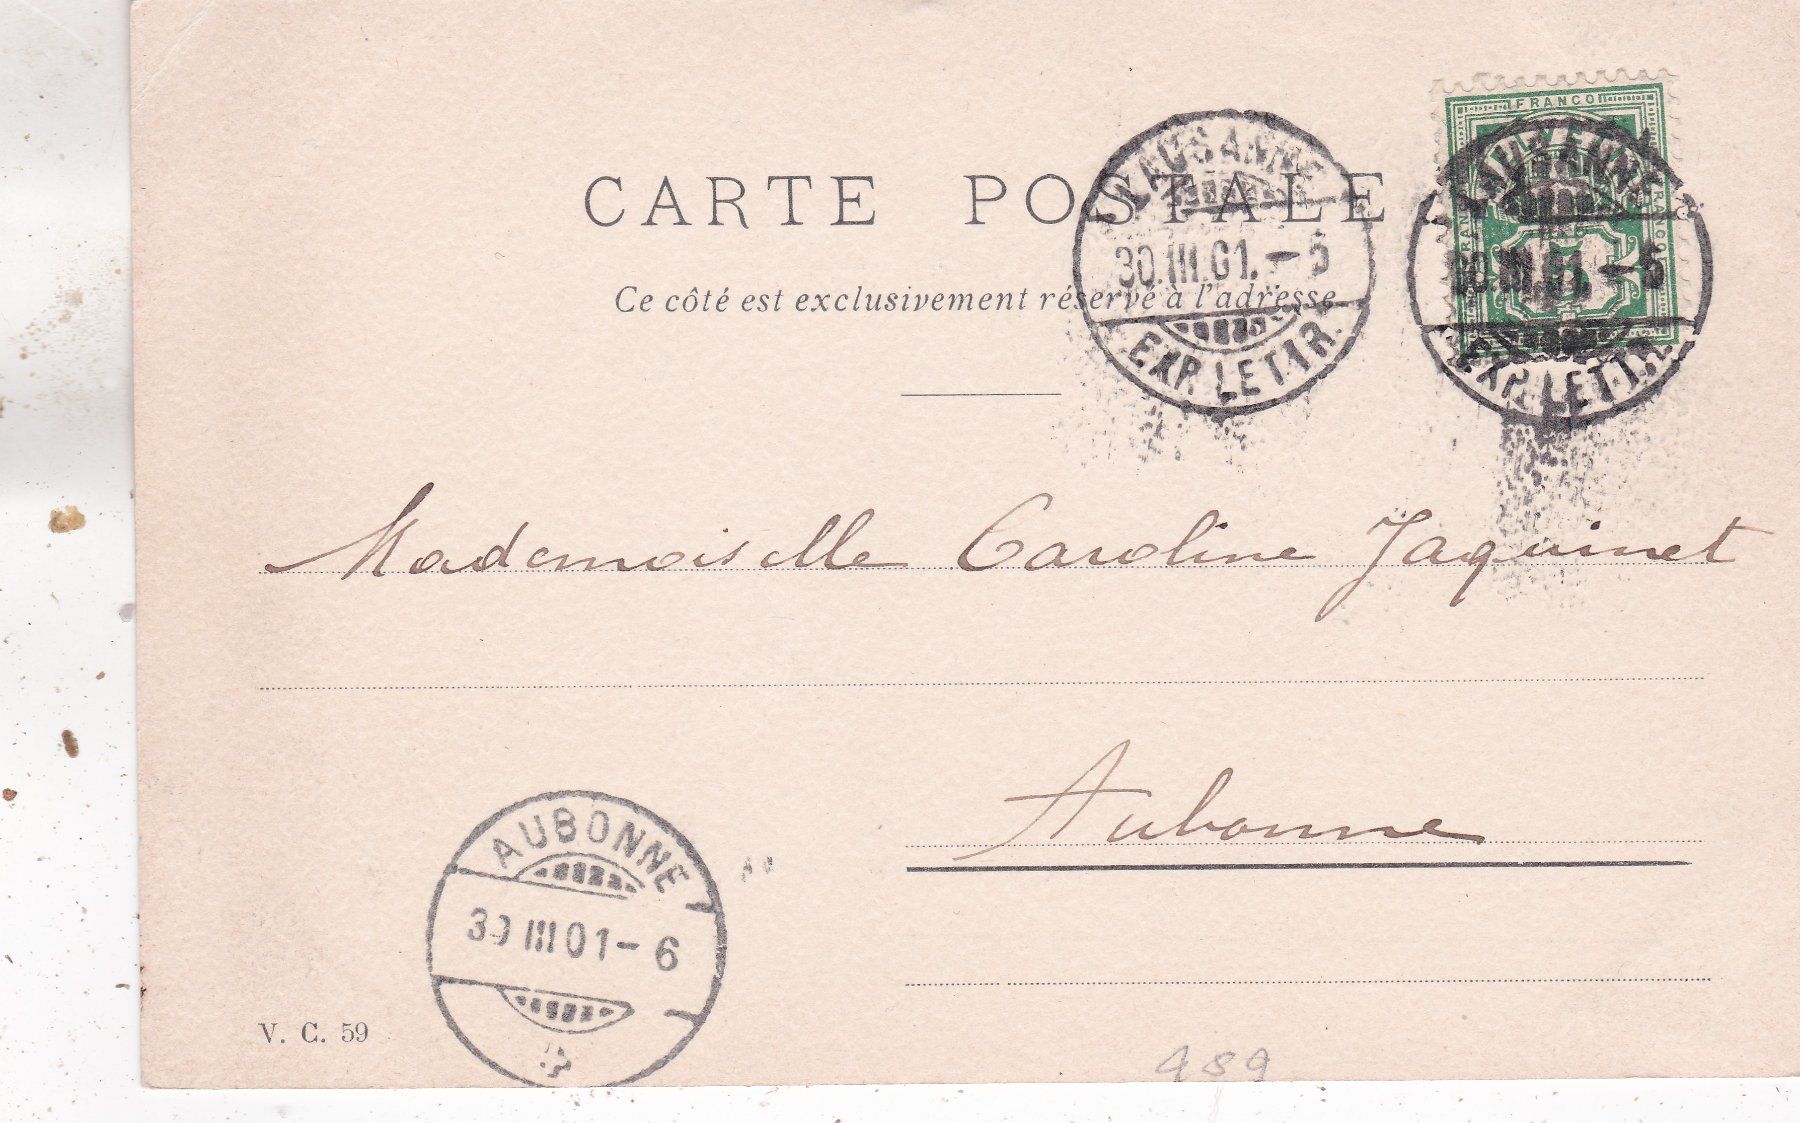 FRANCO
HELVETIA
FRANCO
FRANCO
5
LAUSANNE
30.III.01.-5
EXP. LETTR.
LAUSANNE
30.III.01.-5
EXP. LETTR.
CARTE POSTALE
Ce côté est exclusivement réservé à l'adresse
Mademoiselle Caroline Jaquinet
Aubonne
AUBONNE
30 III 01-6
V. C. 59
989